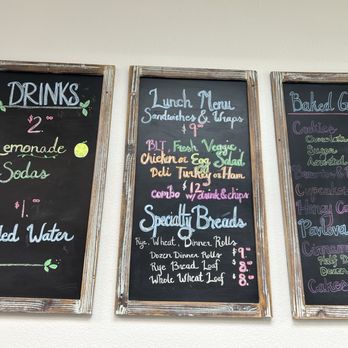 DRINKS
$2.
Lemonade
Sodas
$1.
Water
Lunch Menu
Sandwiches & Wraps
$9.
BLT, Fresh Veggie
Chicken or Egg Salad,
Deli Turkey or Ham
$12.
combo w/ drink & chips
Specialty Breads
Rye, Wheat, Dinner Rolls
Dozen Dinner Rolls $9.
Rye Bread Loaf $8.
Whole Wheat Loaf $8.
Baked
Cookies
Chocolate
Sugar
Assorted
Cupcakes
Pavlova
Cinnamon
Half D
Dozen
Cakes